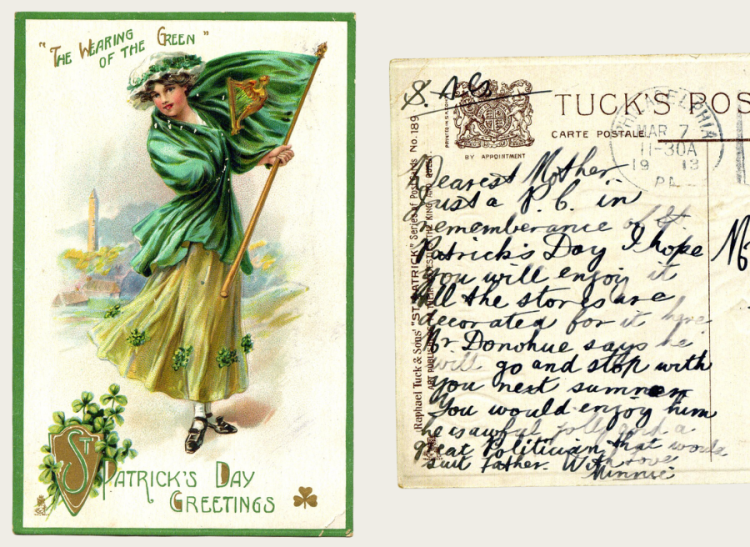 "THE WEARING
OF THE GREEN"
ST PATRICK'S DAY
GREETINGS
TUCK'S POS
CARTE POSTALE
BY APPOINTMENT
PHILADELPHIA
MAR 7
11-30A
19 13
PA
Raphael Tuck & Sons' "ST PATRICK" Series of Post Cards No. 189
Dearest Mother
Just a P. C. in
rememberance of St.
Patrick's Day I hope
you will enjoy it
All the stores are
decorated for it here
Mr Donohue says he
will go and stop with
you next summer
You would enjoy him
he is awful jolly and a
great Politician that would
suit father. With love
Minnie